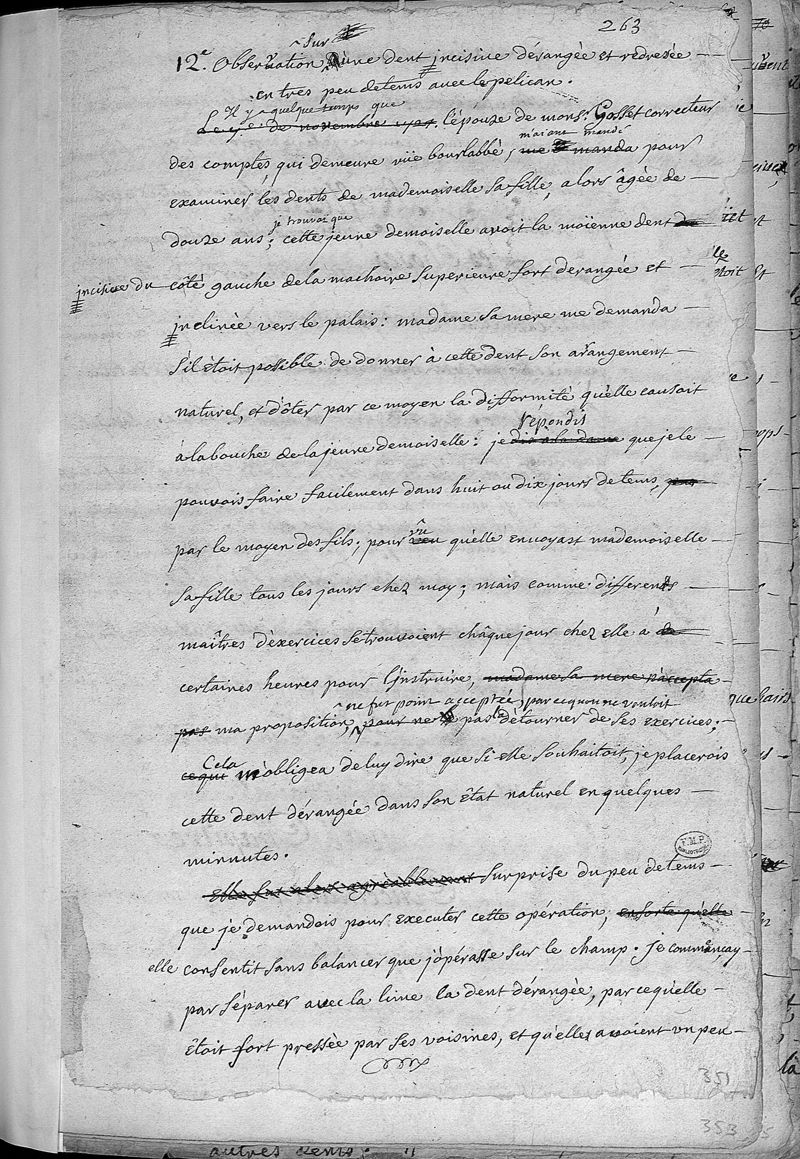 263
sur
12.e Observation d'une dent incisive dérangée et redresée
en tres peu de tems avec le pelican.
Il y a quelque temps que
de novembre l'épouze de mons.r Gosset correcteur
m'aiant mandé
des comptes, qui demeure rüe bourlabbé, me manda pour
examiner les dents de mademoiselle sa fille, alors âgée de
je trouvai que
douze ans; cette jeune demoiselle avoit la moïenne dent
incisive du côté gauche de la machoire superieure fort derangée et
inclinée vers le palais: madame sa mere me demanda
s'il étoit possible de donner à cette dent son arangement
naturel, et d'ôter par ce moyen la difformité qu'elle causoit
répondis
à la bouche de la jeune demoiselle: je dis a la dame que je le
pouvois faire facilement dans huit ou dix jours de tems, par
vû
par le moyen des fils; pour veu qu'elle envoyast mademoiselle
sa fille tous les jours chez moy; mais comme differents
maîtres d'exercices se trouvoient châque jour chez elle à de
certaines heures pour l'instruire, madame sa mere n'accepta
ne fut point acceptée, parcequ'on ne vouloit
pas ma proposition, pour ne pas la détourner de ses exercices;
Cela
ce qui m'obligea de luy dire que si elle souhaitoit, je placerois
cette dent dérangée dans son êtat naturel en quelques
minutes.
F.M.P.
Elle fut alors agréablement surprise du peu de tems
que je demandois pour executer cette opération; ensorte qu'elle
elle consentit sans balancer que j'opérasse sur le champ. Je commançay
par séparer avec la lime la dent dérangée, parcequ'elle
êtoit fort pressée par ses voisines, et qu'elles avoient un peu
351
353
autres dents.